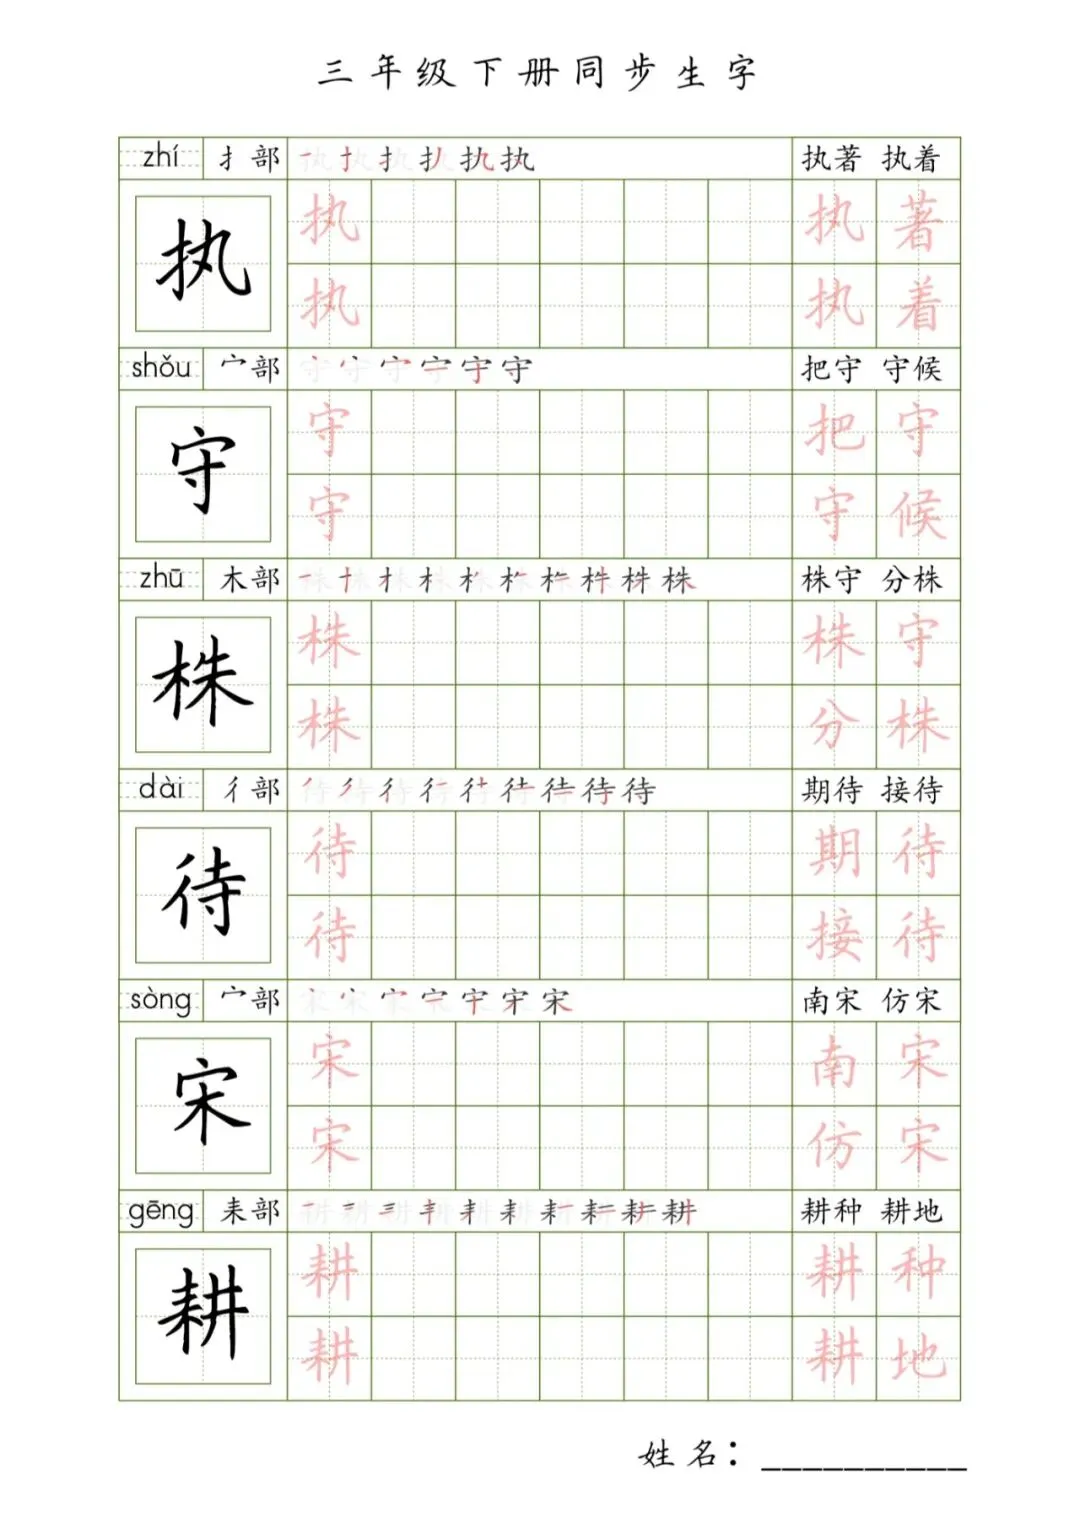 三年级下册同步生字
zhí 扌部 执执执执执执 执著 执着
执 执 执 著
执 执 着
shǒu 宀部 守守守守守守 把守 守候
守 守 把 守
守 守 候
zhū 木部 株株株株株株株株株株 株守 分株
株 株 株 守
株 分 株
dài 彳部 待待待待待待待待待 期待 接待
待 待 期 待
待 接 待
sòng 宀部 宋宋宋宋宋宋宋 南宋 仿宋
宋 宋 南 宋
宋 仿 宋
gēng 耒部 耕耕耕耕耕耕耕耕耕耕 耕种 耕地
耕 耕 耕 种
耕 耕 地
姓名：__________